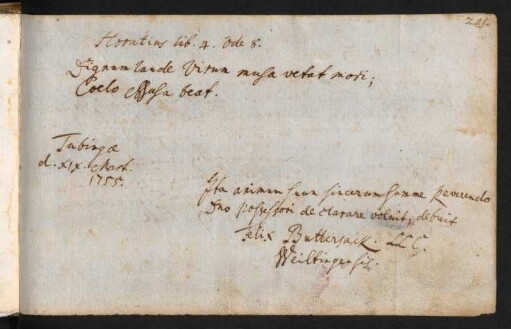 Horatius lib. 4. Ode 8.
Dignum laude Virum musa vetat mori;
Coelo Musa beat.
Tubingæ
d. XIX. Mart.
1755.
Ita animum suum sincerum summe Reverendo
Dno possessori declarare voluit, debuit
Felix Buttersack. LLC.
Weiltingensis.